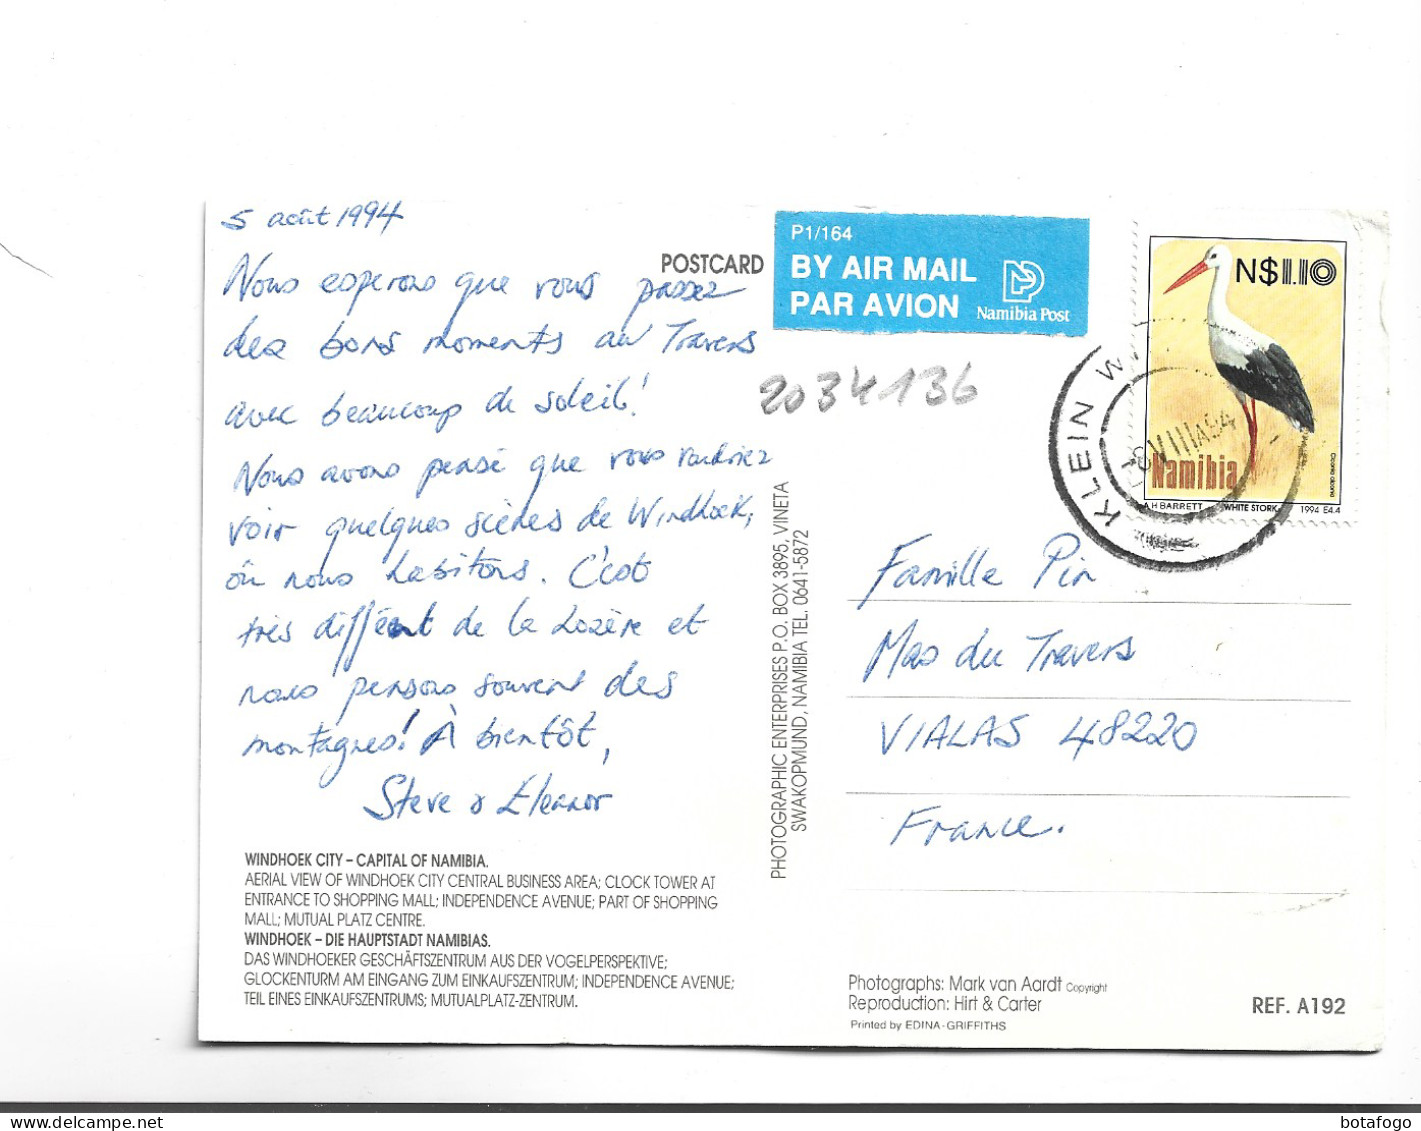 5 août 1994
Nous esperons que vous passez
des bons moments au Travers
avec beaucoup de soleil!
Nous avons pensé que vous voudriez
voir quelques scènes de Windhoek,
où nous habitons. C'est
très différent de la Lozère et
nous pensons souvent des
montagnes! À bientôt,
Steve & Eleanor
WINDHOEK CITY – CAPITAL OF NAMIBIA.
AERIAL VIEW OF WINDHOEK CITY CENTRAL BUSINESS AREA; CLOCK TOWER AT
ENTRANCE TO SHOPPING MALL; INDEPENDENCE AVENUE; PART OF SHOPPING
MALL; MUTUAL PLATZ CENTRE.
WINDHOEK – DIE HAUPTSTADT NAMIBIAS.
DAS WINDHOEKER GESCHÄFTSZENTRUM AUS DER VOGELPERSPEKTIVE;
GLOCKENTURM AM EINGANG ZUM EINKAUFSZENTRUM; INDEPENDENCE AVENUE;
TEIL EINES EINKAUFSZENTRUMS; MUTUALPLATZ-ZENTRUM.
POSTCARD
P1/164
BY AIR MAIL
PAR AVION
Namibia Post
2034136
PHOTOGRAPHIC ENTERPRISES P.O. BOX 3895, VINETA
SWAKOPMUND, NAMIBIA TEL. 0641-5872
N$1.10
Namibia
Ciconia ciconia
A H BARRETT WHITE STORK 1994 E4.4
KLEIN W
VIII
Famille Pin
Mas du Travers
VIALAS 48220
France.
Photographs: Mark van Aardt Copyright
Reproduction: Hirt & Carter
Printed by EDINA-GRIFFITHS
REF. A192
botafogo